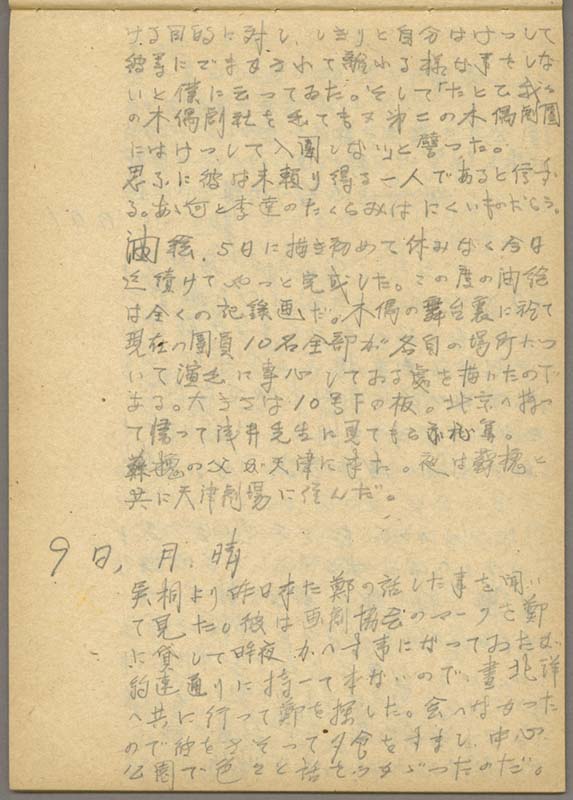 ける目的に対し、しきりと自分はけっして
彼等にでまかされて離れる様な事をしな
いと僕に云ってゐた。そして「たとひ我々
の木偶劇社を出ても又第二の木偶劇團
にはけっして入團しない」と譬った。
思ふに彼は未頼り得る一人であると信ず
る。あゝ何と李達のたくらみはにくいものだらう。
油絵、5日に描き初めて休みなく今日
迄續けてやっと完成した。この度の油絵
は全くの記録画だ。木偶の舞台裏に於て
現在の團員10名全部が各自の場所につ
いて演出に専心してゐる處を描いたので
ある。大きさは10号Fの板。北京へ持っ
て帰って浅井先生に見てもらふ積算。
蘇槐の父が天津に來た。夜は蘇槐と
共に天津劇場に住んだ。
9日, 月, 晴
吴桐より昨日来た鄭の話した事を聞い
て見た。彼は画劇協会のマークを鄭
に貸して昨夜かへす事になっておたが
約束通りに持って来ないので、晝北洋
へ共に行って鄭を探した。会へなかった
ので彼をさそって夕食をすまし、中心
公園で色々と話をつづったのだ。